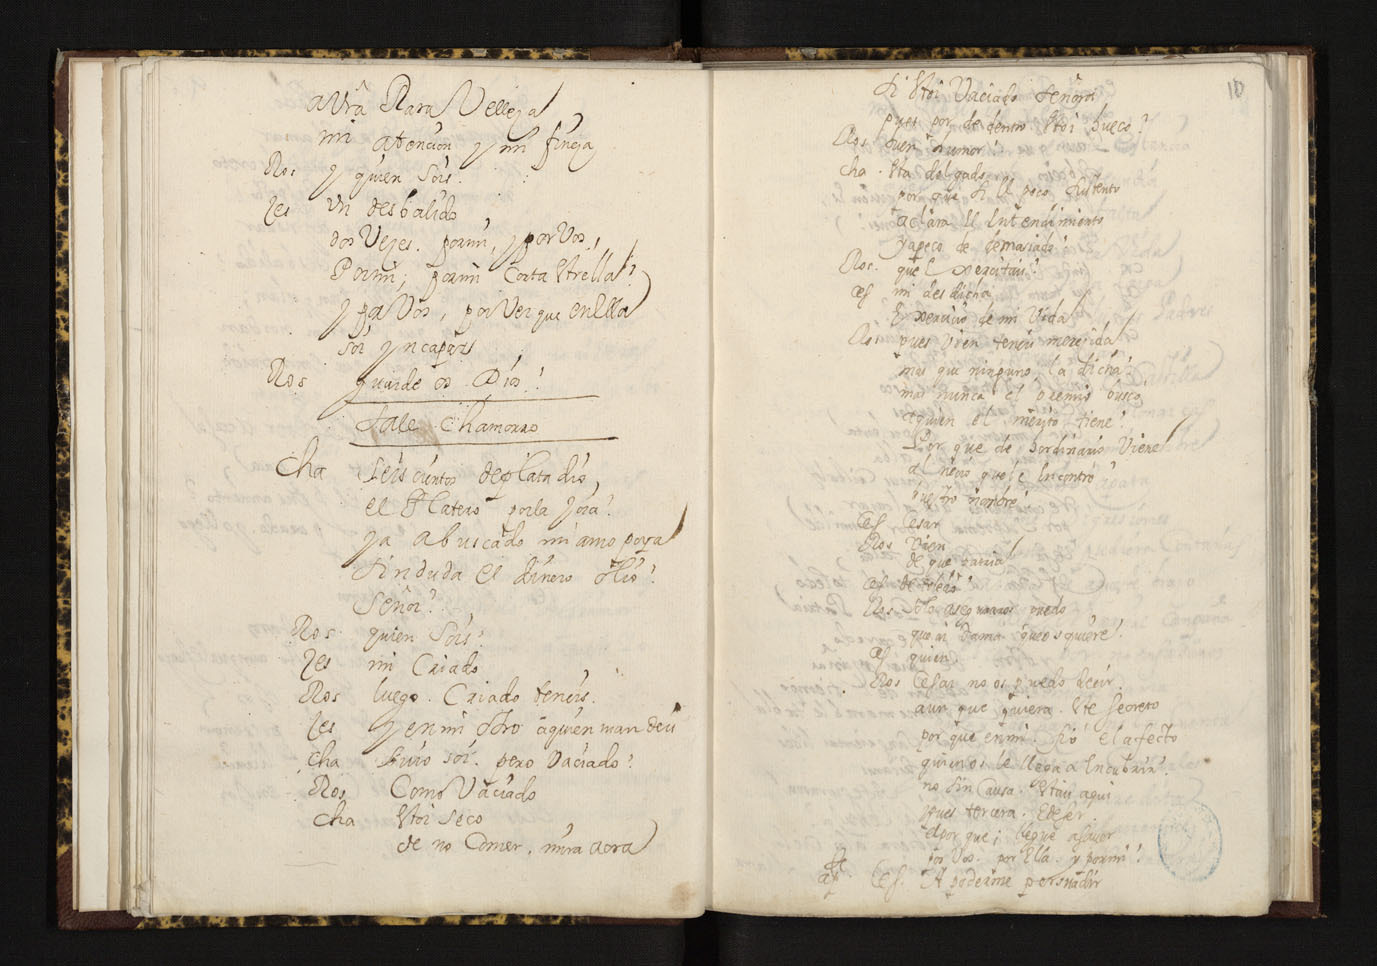 avra Rara Velleza
mi atencion y mi fineza
Ros y quien sois.
Zes Vn desbalido
dos Vezes. pormi, y por Vos,
Pormi; pormi Corta Strella?
y por Vos, por Ver que en Ella
soi yncapaz
Ros guarde os Dios!
Sale Chamorro
Cha Seiscientos de plata dio
el Platero por la Joia?
ya a buscado mi amo
sin duda el dinero
Señor?
Ros quien sois?
Zes mi Criado
Ros luego. Criado teneis.
Zes y en mi otro a quien mandeis
Cha suio soi. pero Vaciado?
Ros Como Vaciado
Cha Stoi seco
de no Comer, mira aora
10
si Stoi Vaciado señora
pues por de dentro Stoi hueco?
Ros buen humor!
Cha. Sta delgado
por que si el poco sustento
aclara el Entendimiento
de demasiado
Ros. que Exercitais?
Ces mi desdicha
Exercicio de mi Vida
Ros pues Vien teneis merezida
mas que ninguno. la dicha?
mas nunca el premio busco
aquien el merito tiene?
Por que de hordinario Viene
al necio que Encontro
vuestro nombre?
Ces Cesar
Ros Vien
de que Patria
Ces de toledo
Ros solo aseguraros puedo
que ai Dama que os quiere!
Ces quien
Ros Cesar no os puedo decir
aun que quiera. Ste secreto
por que en mi. fió el afecto
quien os le llega a Encubrir!
no sin Causa. Stais aqui
pues tercera. E de ser
por Vos. por Ella. y pormi!
Ces. A poderme persuadir